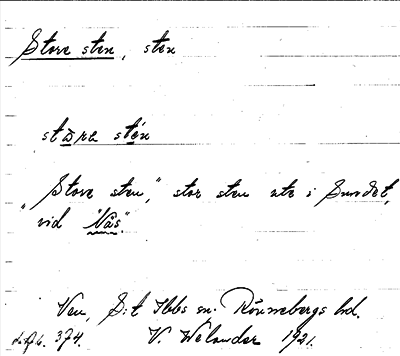 Store sten, sten
störe stén
"Store sten," stor sten ute i Sundet,
vid "Näs".
Ven, S:t Ibbs sn. Rönnebergs hd.
374. V. Welander 1921.